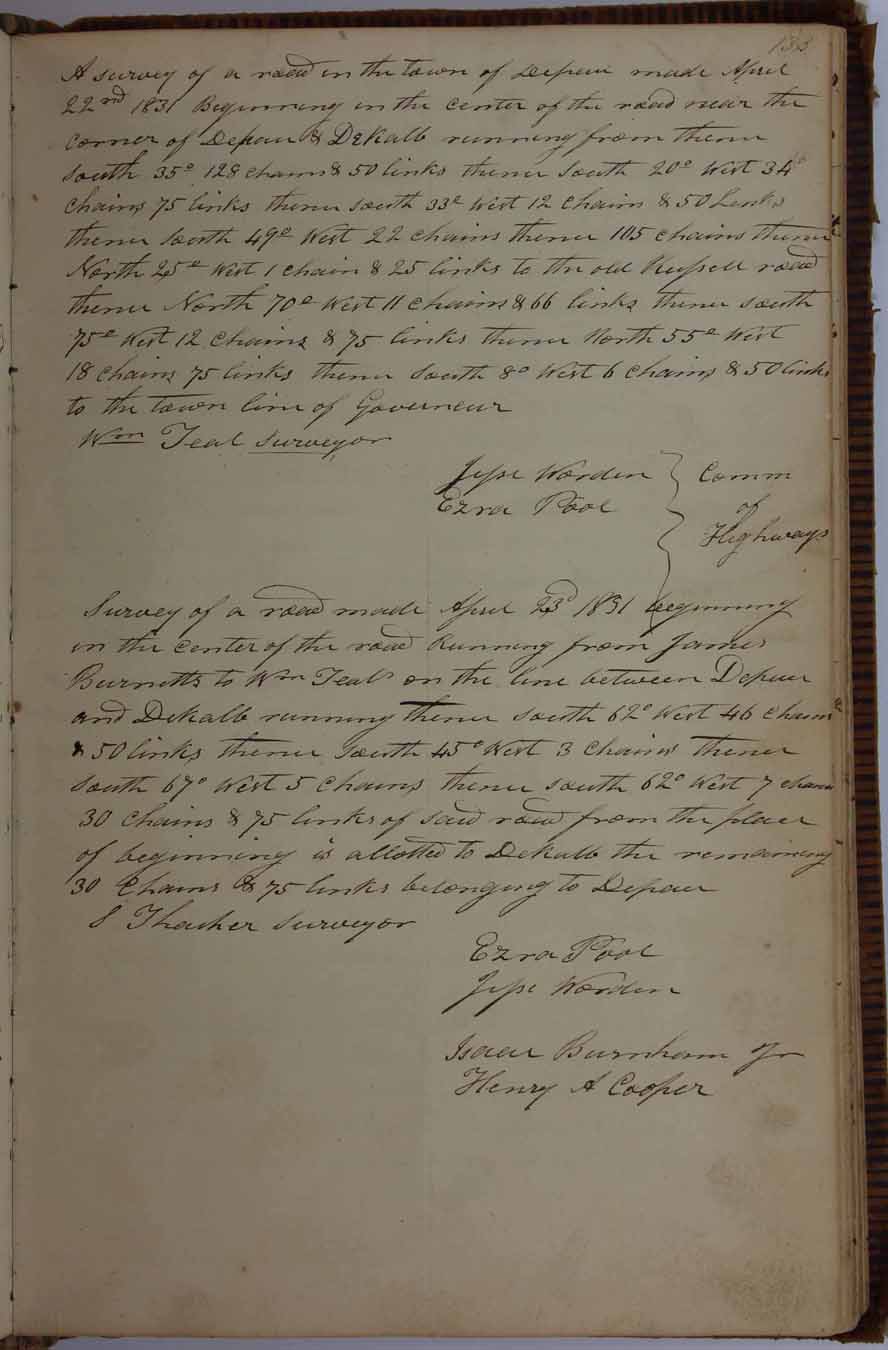 133
A survey of a road in the town of Depau made April
22nd 1831 Beginning in the center of the road near the
corner of Depau & DeKalb running from thence
South 35° 128 chains & 50 links thence South 20° West 34
chains 75 links thence south 33° West 12 chains & 50 Links
thence South 49° West 22 chains thence 105 chains thence
North 25° West 1 chain & 25 links to the old Russell road
thence North 70° West 11 chains & 66 links thence south
75° West 12 Chains & 75 links thence North 55° West
18 chains 75 links thence South 8° West 6 chains & 50 links
to the town line of Governeur
Wm Teal Surveyor
Jesse Worden } Comm
Ezra Pool of
Highways
Survey of a road made April 23d 1831 beginning
in the center of the road Running from James
Burnetts to Wm Teals on the line between Depau
and Dekalb running thence south 62° West 46 chains
& 50 links thence South 45° West 3 Chains thence
South 67° West 5 Chains thence south 62° West 7 chains
30 Chains & 75 links of said road from the place
of beginning is allotted to Dekalb the remaining
30 Chains & 75 links belonging to Depau
S Thacher Surveyor
Ezra Pool
Jesse Worden
Isaac Burnham Jr
Henry A Cooper